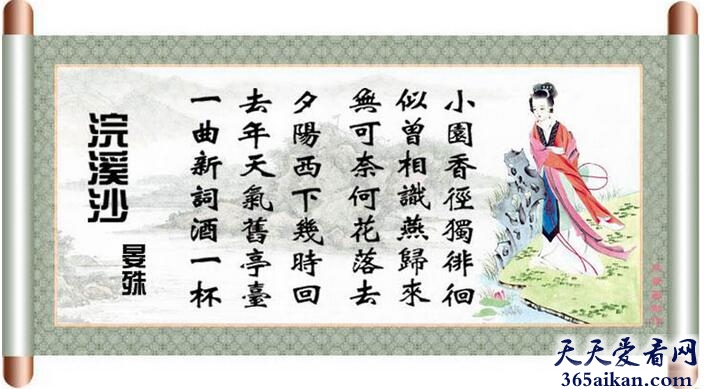 浣溪沙
晏殊
一曲新詞酒一杯
去年天氣舊亭臺
夕陽西下幾時回
無可奈何花落去
似曾相識燕歸來
小園香徑獨徘徊
天天爱看网
365aikan.com